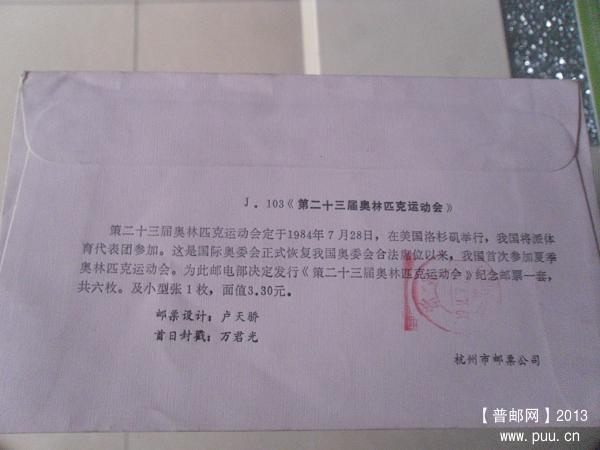 J．103《第二十三届奥林匹克运动会》
第二十三届奥林匹克运动会定于1984年7月28日，在美国洛杉矶举行，我国将派体
育代表团参加。这是国际奥委会正式恢复我国奥委会合法席位以来，我国首次参加夏季
奥林匹克运动会。为此邮电部决定发行《第二十三届奥林匹克运动会》纪念邮票一套，
共六枚。及小型张1枚，面值3.30元。
邮票设计：卢天骄
首日封戳：万君光
杭州市邮票公司
【普邮网】2013
www.puu.cn